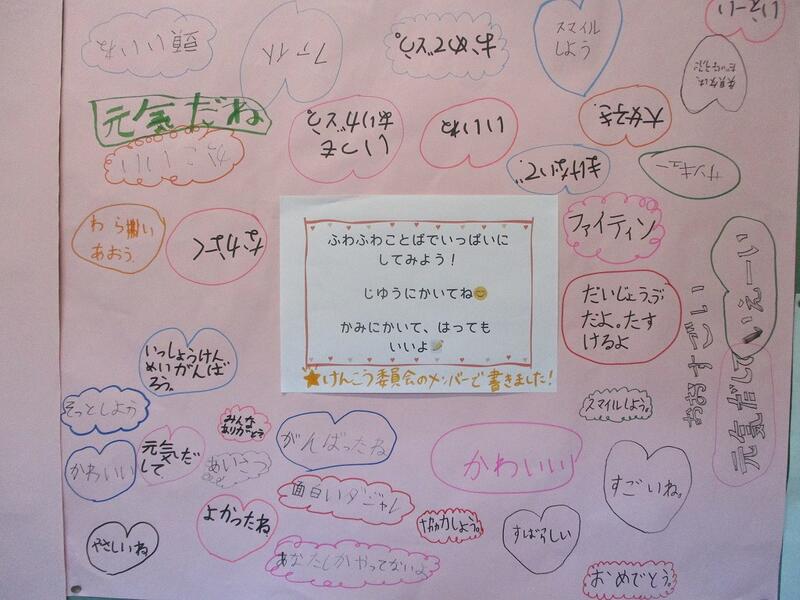 頭いいね
ファイト
おめでとう。
スマイル
しよう
いえーい
元気だね
いつも
ありがとう。
いいね
大好き。
かっこいい
まけないで。
サンキュー
わら顔い
あおう
なかよく
ファイティン
ふわふわことばでいっぱいに
してみよう！
じゆうにかいてね😊
かみにかいて、はっても
いいよ
★けんこう委員会のメンバーで書きました！
だいじょうぶ
だよ。たす
けるよ
おおすごい
いえーい
元気だして
いっしょうけん
めいがんば
ろう。
そっとしよう
みんな
ありがとう
がんばったね
スマイルしよう。
かわいい
元気だ
して
あいさつ
かわいい
すごいね。
面白いダジャレ
よかったね
協力しよう。
すばらしい
やさしいね
あなたしかやってないよ
おめでとう。